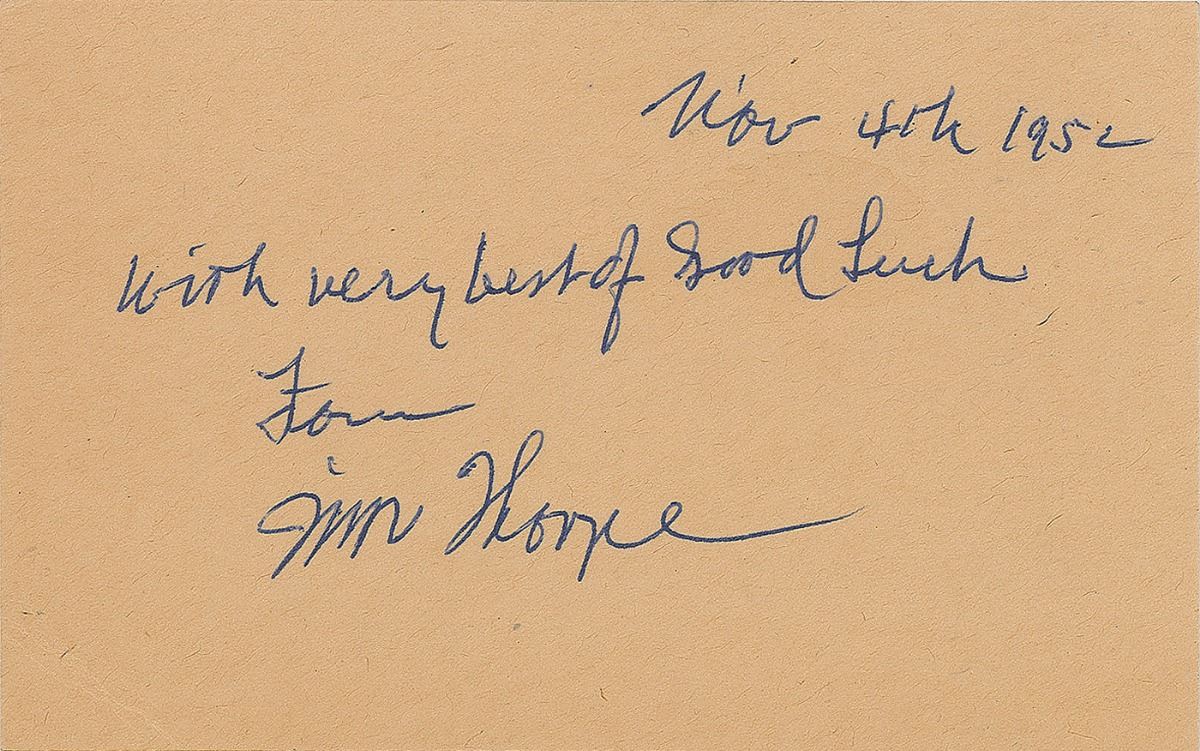 Nov 4th 1952
With very best of Good Luck
From
Jim Thorpe